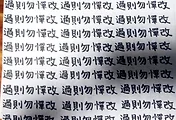 過則勿憚改 過則勿憚改 過則勿憚改
過則勿憚改 過則勿憚改 過則勿憚改
過則勿憚改 過則勿憚改 過則勿憚改
過則勿憚改 過則勿憚改 過則勿憚改
過則勿憚改 過則勿憚改 過則勿憚改
過則勿憚改 過則勿憚改 過則勿憚改
過則勿憚改 過則勿憚改 過則勿憚改
過則勿憚改 過則勿憚改 過則勿憚改